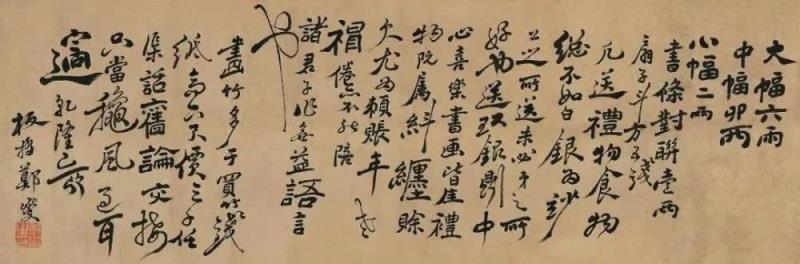 大幅六兩
中幅四兩
小幅二兩
書條對聯壹兩
扇子斗方五錢
凡送禮物食物
總不如白銀為妙
公之所送未必弟之所
好也送現銀則中
心喜樂書画皆佳禮
物既属糾纏賒
欠尤為賴賬年老
倦亦不能陪
諸君子作無益語言
也
畫竹多于買竹錢
紙高六尺價三千任
渠話舊論交接
只當穐風過耳
邊乾隆己卯
板橋鄭燮